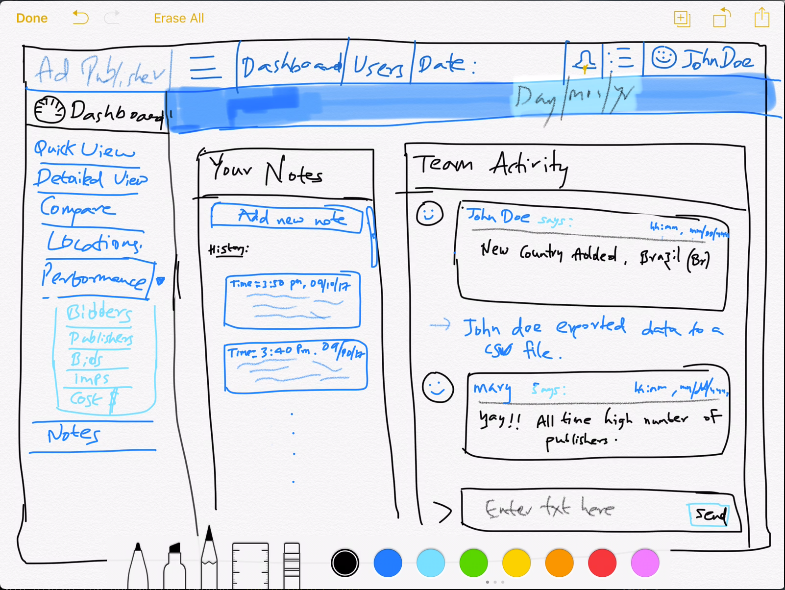 Done
Erase All
Ad Publisher
Dashboard
Users
Date:
John Doe
Day/mm/yr
Dashboard
Quick View
Detailed View
Compare
Locations.
Performance
Bidders
Publishers
Bids
Imps
Cost $
Notes
Your Notes
Add new note
History:
Time=3:50 pm, 09/10/17
Time= 3:40 Pm, 09/10/17
Team Activity
John Doe says:
New Country Added, Brazil (Br)
→ John doe exported data to a
csv file.
mary says:
Yay!! All time high number of
publishers.
> Enter txt here
Send